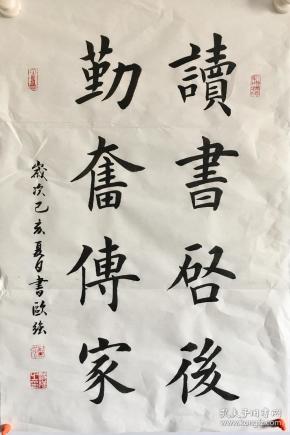 讀書啓後
勤奮傳家
歲次己亥夏月書歐強
孔夫子旧书网